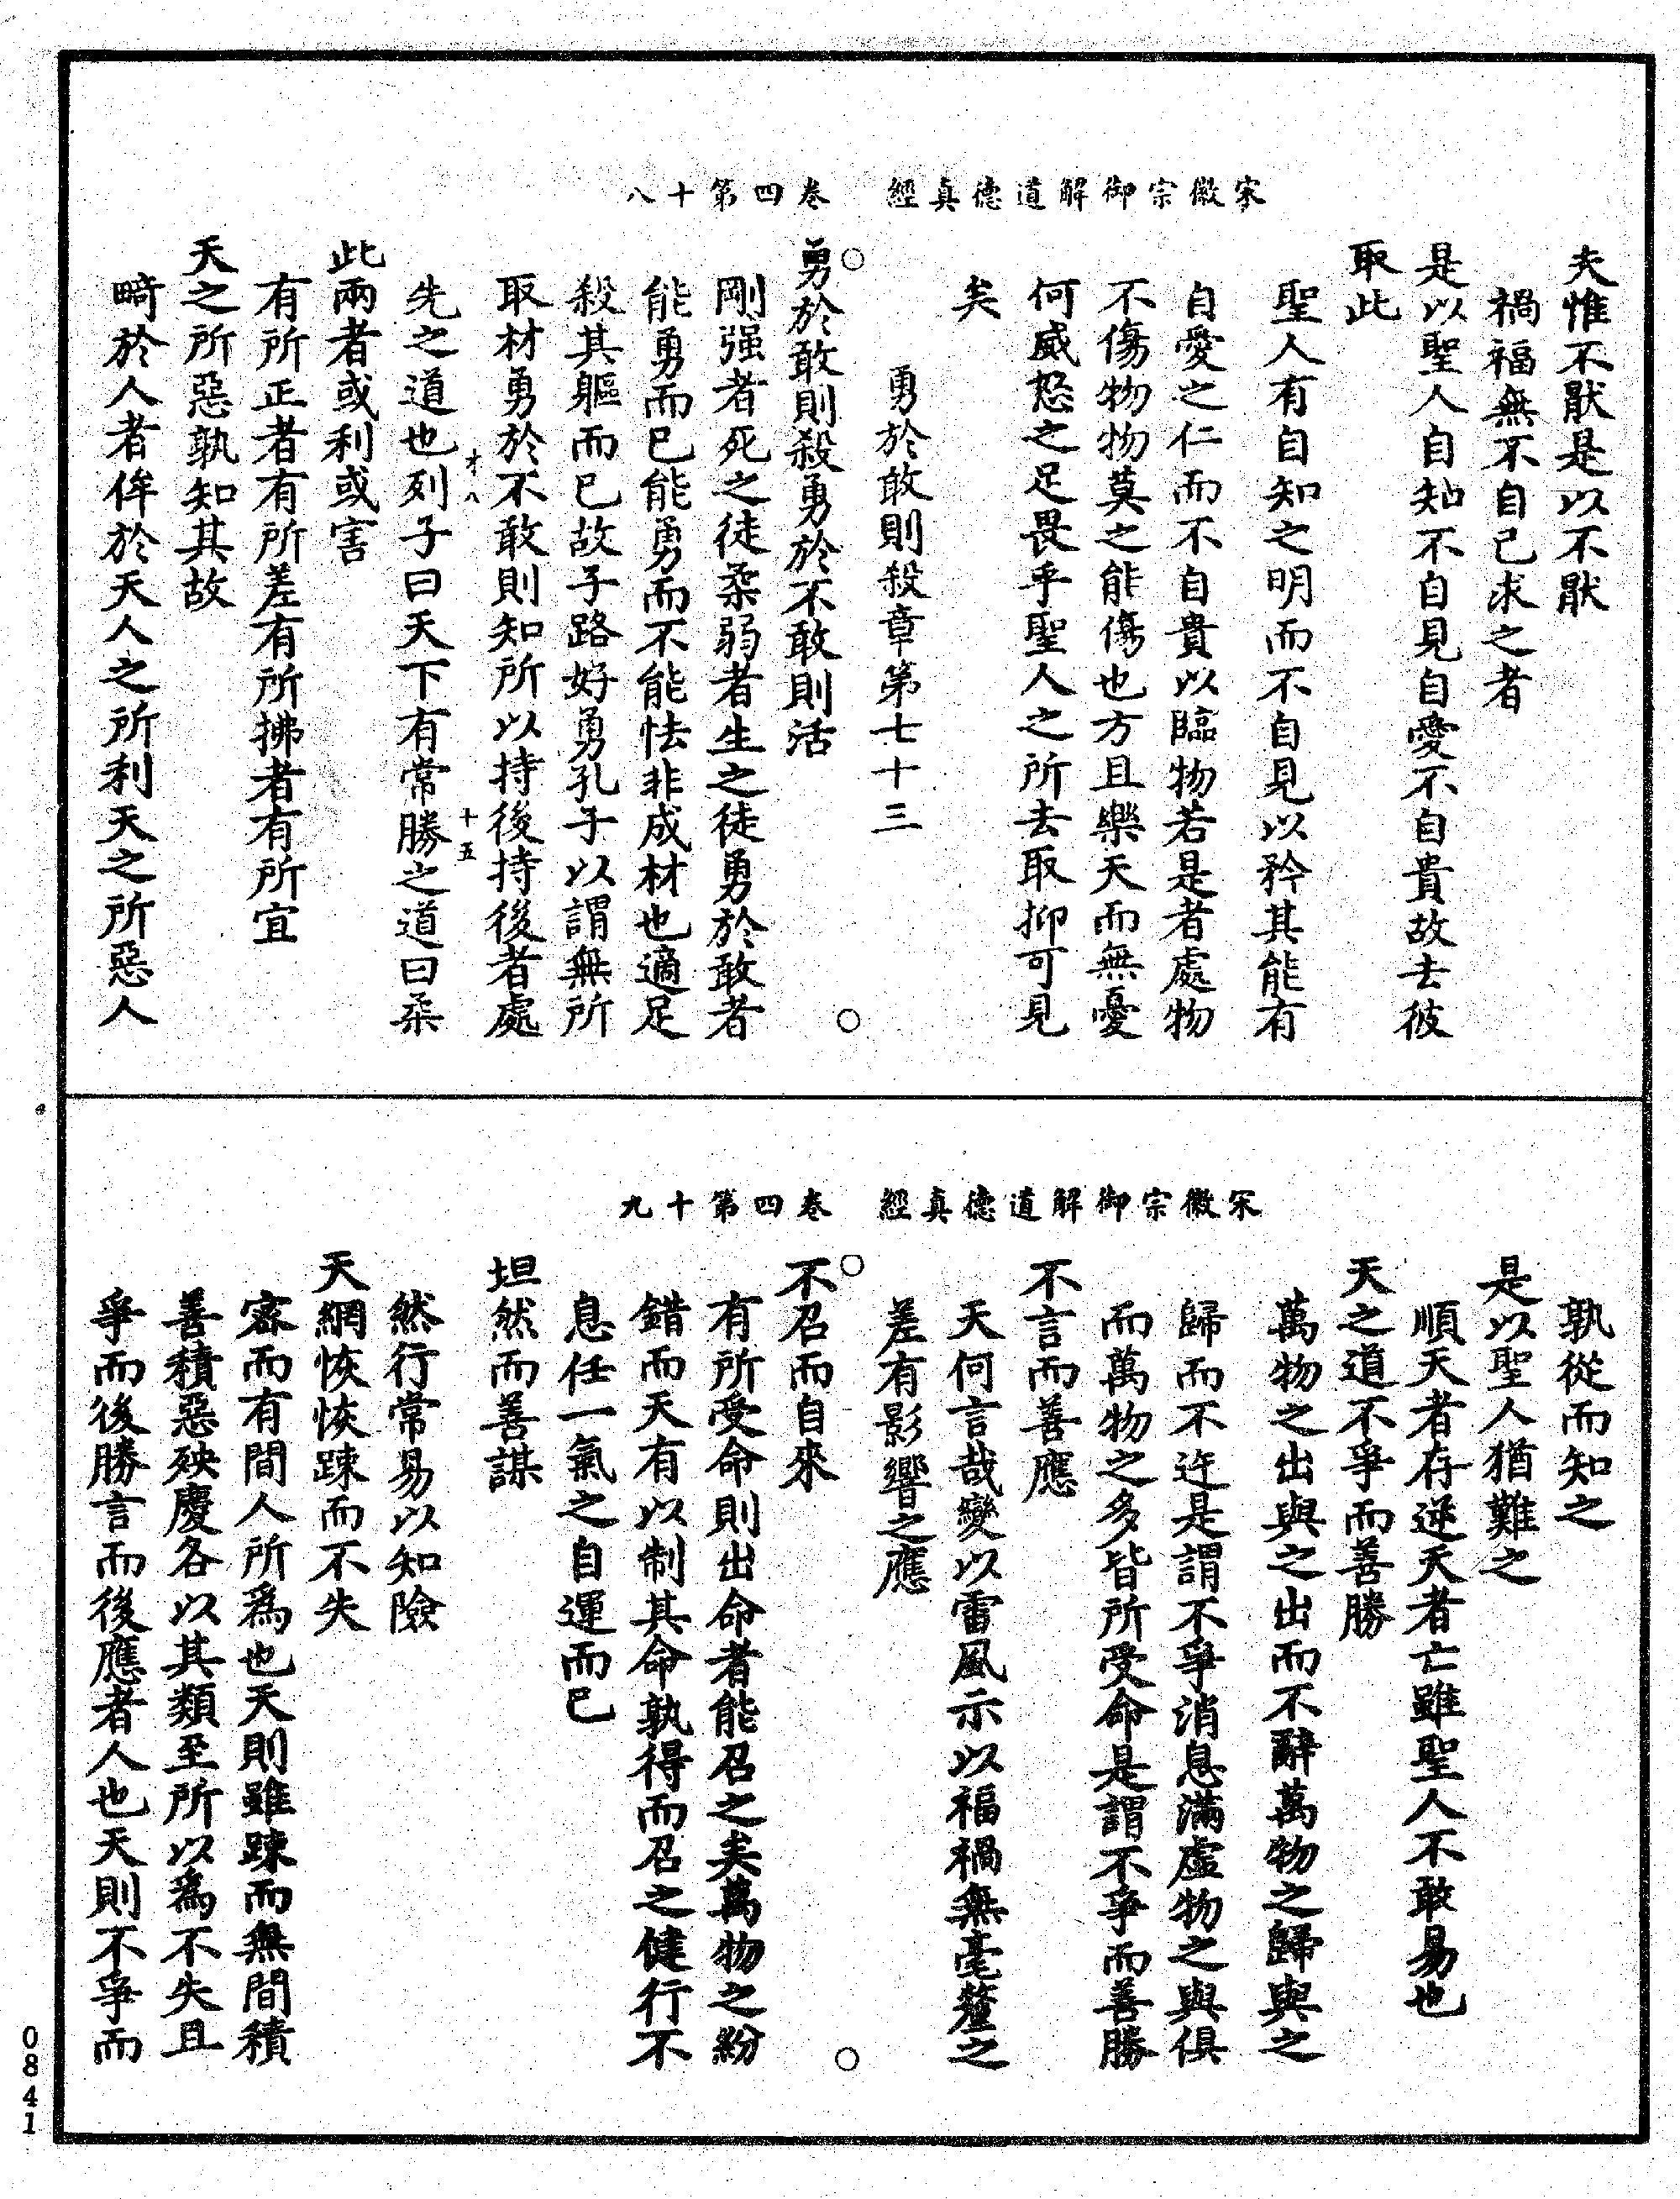 宋徽宗御解道德真經　卷四第十八
夫惟不猒是以不猒
禍福無不自己求之者
是以聖人自知不自見自愛不自貴故去彼
取此
聖人有自知之明而不自見以矜其能有
自愛之仁而不自貴以臨物若是者處物
不傷物物莫之能傷也方且樂天而無憂
何威怒之足畏乎聖人之所去取抑可見
矣
勇於敢則殺章第七十三
勇於敢則殺勇於不敢則活
剛强者死之徒柔弱者生之徒勇於敢者
能勇而已能勇而不能怯非成材也適足
殺其軀而已故子路好勇孔子以謂無所
取材勇於不敢則知所以持後持後者處
才八
十五
先之道也列子曰天下有常勝之道曰柔
此兩者或利或害
有所正者有所差有所拂者有所宜
天之所惡孰知其故
畸於人者侔於天人之所利天之所惡人
宋徽宗御解道德真經　卷四第十九
孰從而知之
是以聖人猶難之
順天者存逆天者亡雖聖人不敢易也
天之道不爭而善勝
萬物之出與之出而不辭萬物之歸與之
歸而不迕是謂不爭消息滿虛物之與俱
而萬物之多皆所受命是謂不爭而善勝
不言而善應
天何言哉變以雷風示以福禍無毫釐之
差有影響之應
不召而自來
有所受命則出命者能召之矣萬物之紛
錯而天有以制其命孰得而召之健行不
息任一氣之自運而已
坦然而善謀
然行常易以知險
天網恢恢踈而不失
密而有間人所為也天則雖踈而無間積
善積惡殃慶各以其類至所以為不失且
爭而後勝言而後應者人也天則不爭而
0841